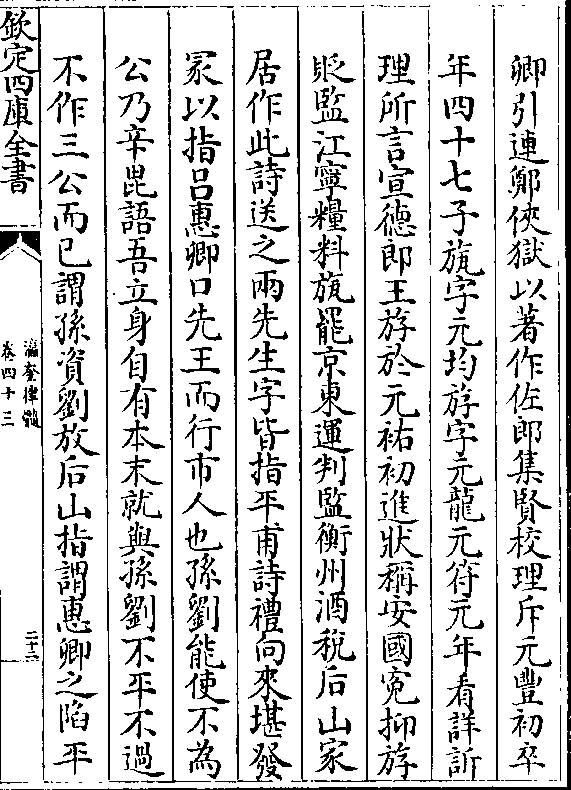 卿引連鄭俠獄以著作佐郎集賢校理斥元豐初卒
年四十七子旊字元均斿字元龍元符元年看詳訢
理所言宣德郎王斿於元祐初進狀稱安國冤抑斿
貶監江寧糧料旊罷京東運判監衡州酒稅后山家
居作此詩送之兩先生字皆指平甫詩禮向來堪發
冢以指呂惠卿口先王而行市人也孫劉能使不為
公乃辛毘語吾立身自有本末就與孫劉不平不過
不作三公而已謂孫資劉放后山指謂惠卿之陷平
欽定四庫全書
瀛奎律髓
卷四十三
二十三